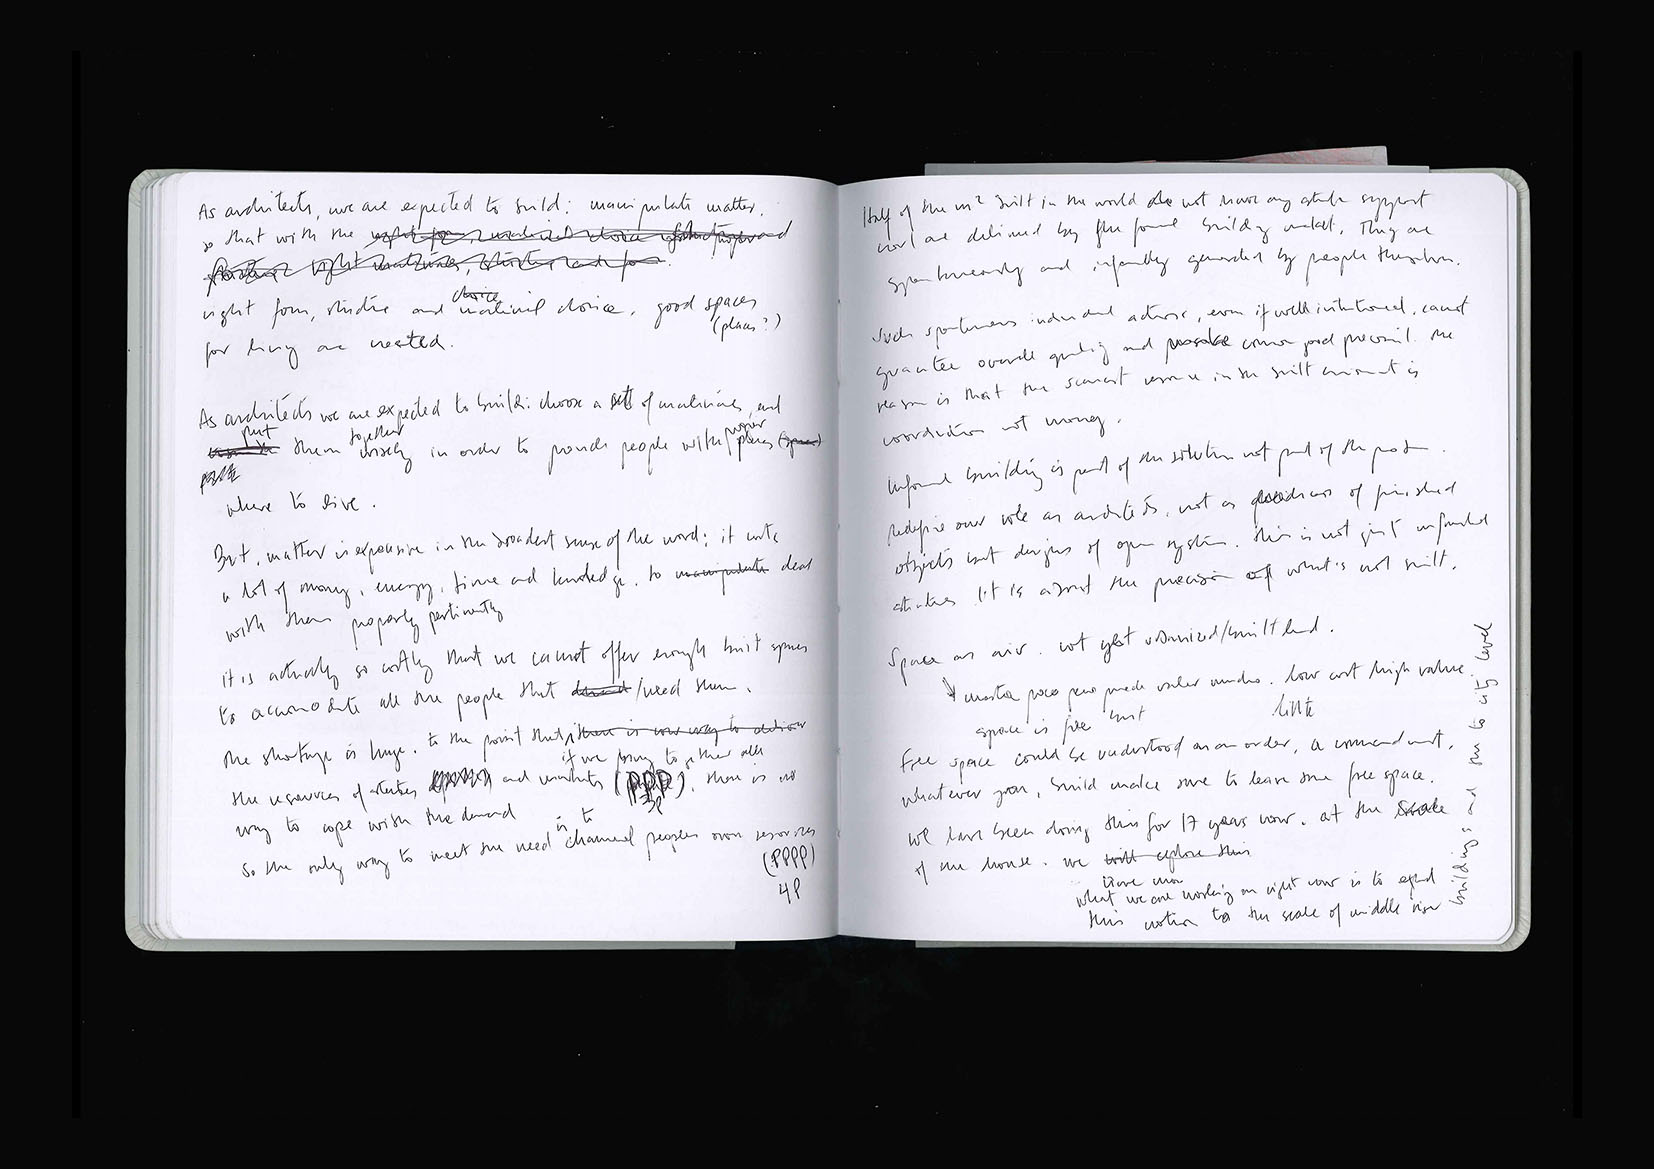 As architects, we are expected to build: manipulate matter.
so that with the
right form, and choice material choice, good spaces
(places?)
for living are created.
As architects we are expected to build: choose a set of materials, and
put them together wisely in order to provide people with proper places (spaces)
where to live.
But, matter is expensive in the broadest sense of the word: it costs
a lot of money, energy, time and knowledge. to manipulate deal
with them properly pertinently
it is actually so costly that we cannot offer enough built spaces
to accomodate all the people that demand/need them.
the shortage is huge. to the point that, there is no way to
if we bring together all
the resources of and (PPP), there is no
3P
way to cope with the demand
so the only way to meet the need is to channel peoples own resources
(PPPP)
4P
Half of the m² built in the world do not have any state support
nor are delivered by the formal building market. They are
spontaneously and generated by people themselves.
Such spontaneous individual actions, even if well intentioned, cannot
guarantee overall quality and common good prevail. the
reason is that the scarcest resource in the built environment is
coordination not money.
Informal building is part of the solution not part of the problem.
Redefine our role as architects, not as of finished
objects but designers of open systems. this is not just unfinished
structures. It is about the precision of what's not built.
Space as air. not yet urbanized/built land.
low cost high value.
space is free but little
Free space could be understood as an order, a commandment.
whatever you, build make sure to leave some free space.
We have been doing this for 17 years now. at the scale
of the house. we will explore this
what we are working on right now is to expand
this notion to the scale of middle rise
buildings and to city level